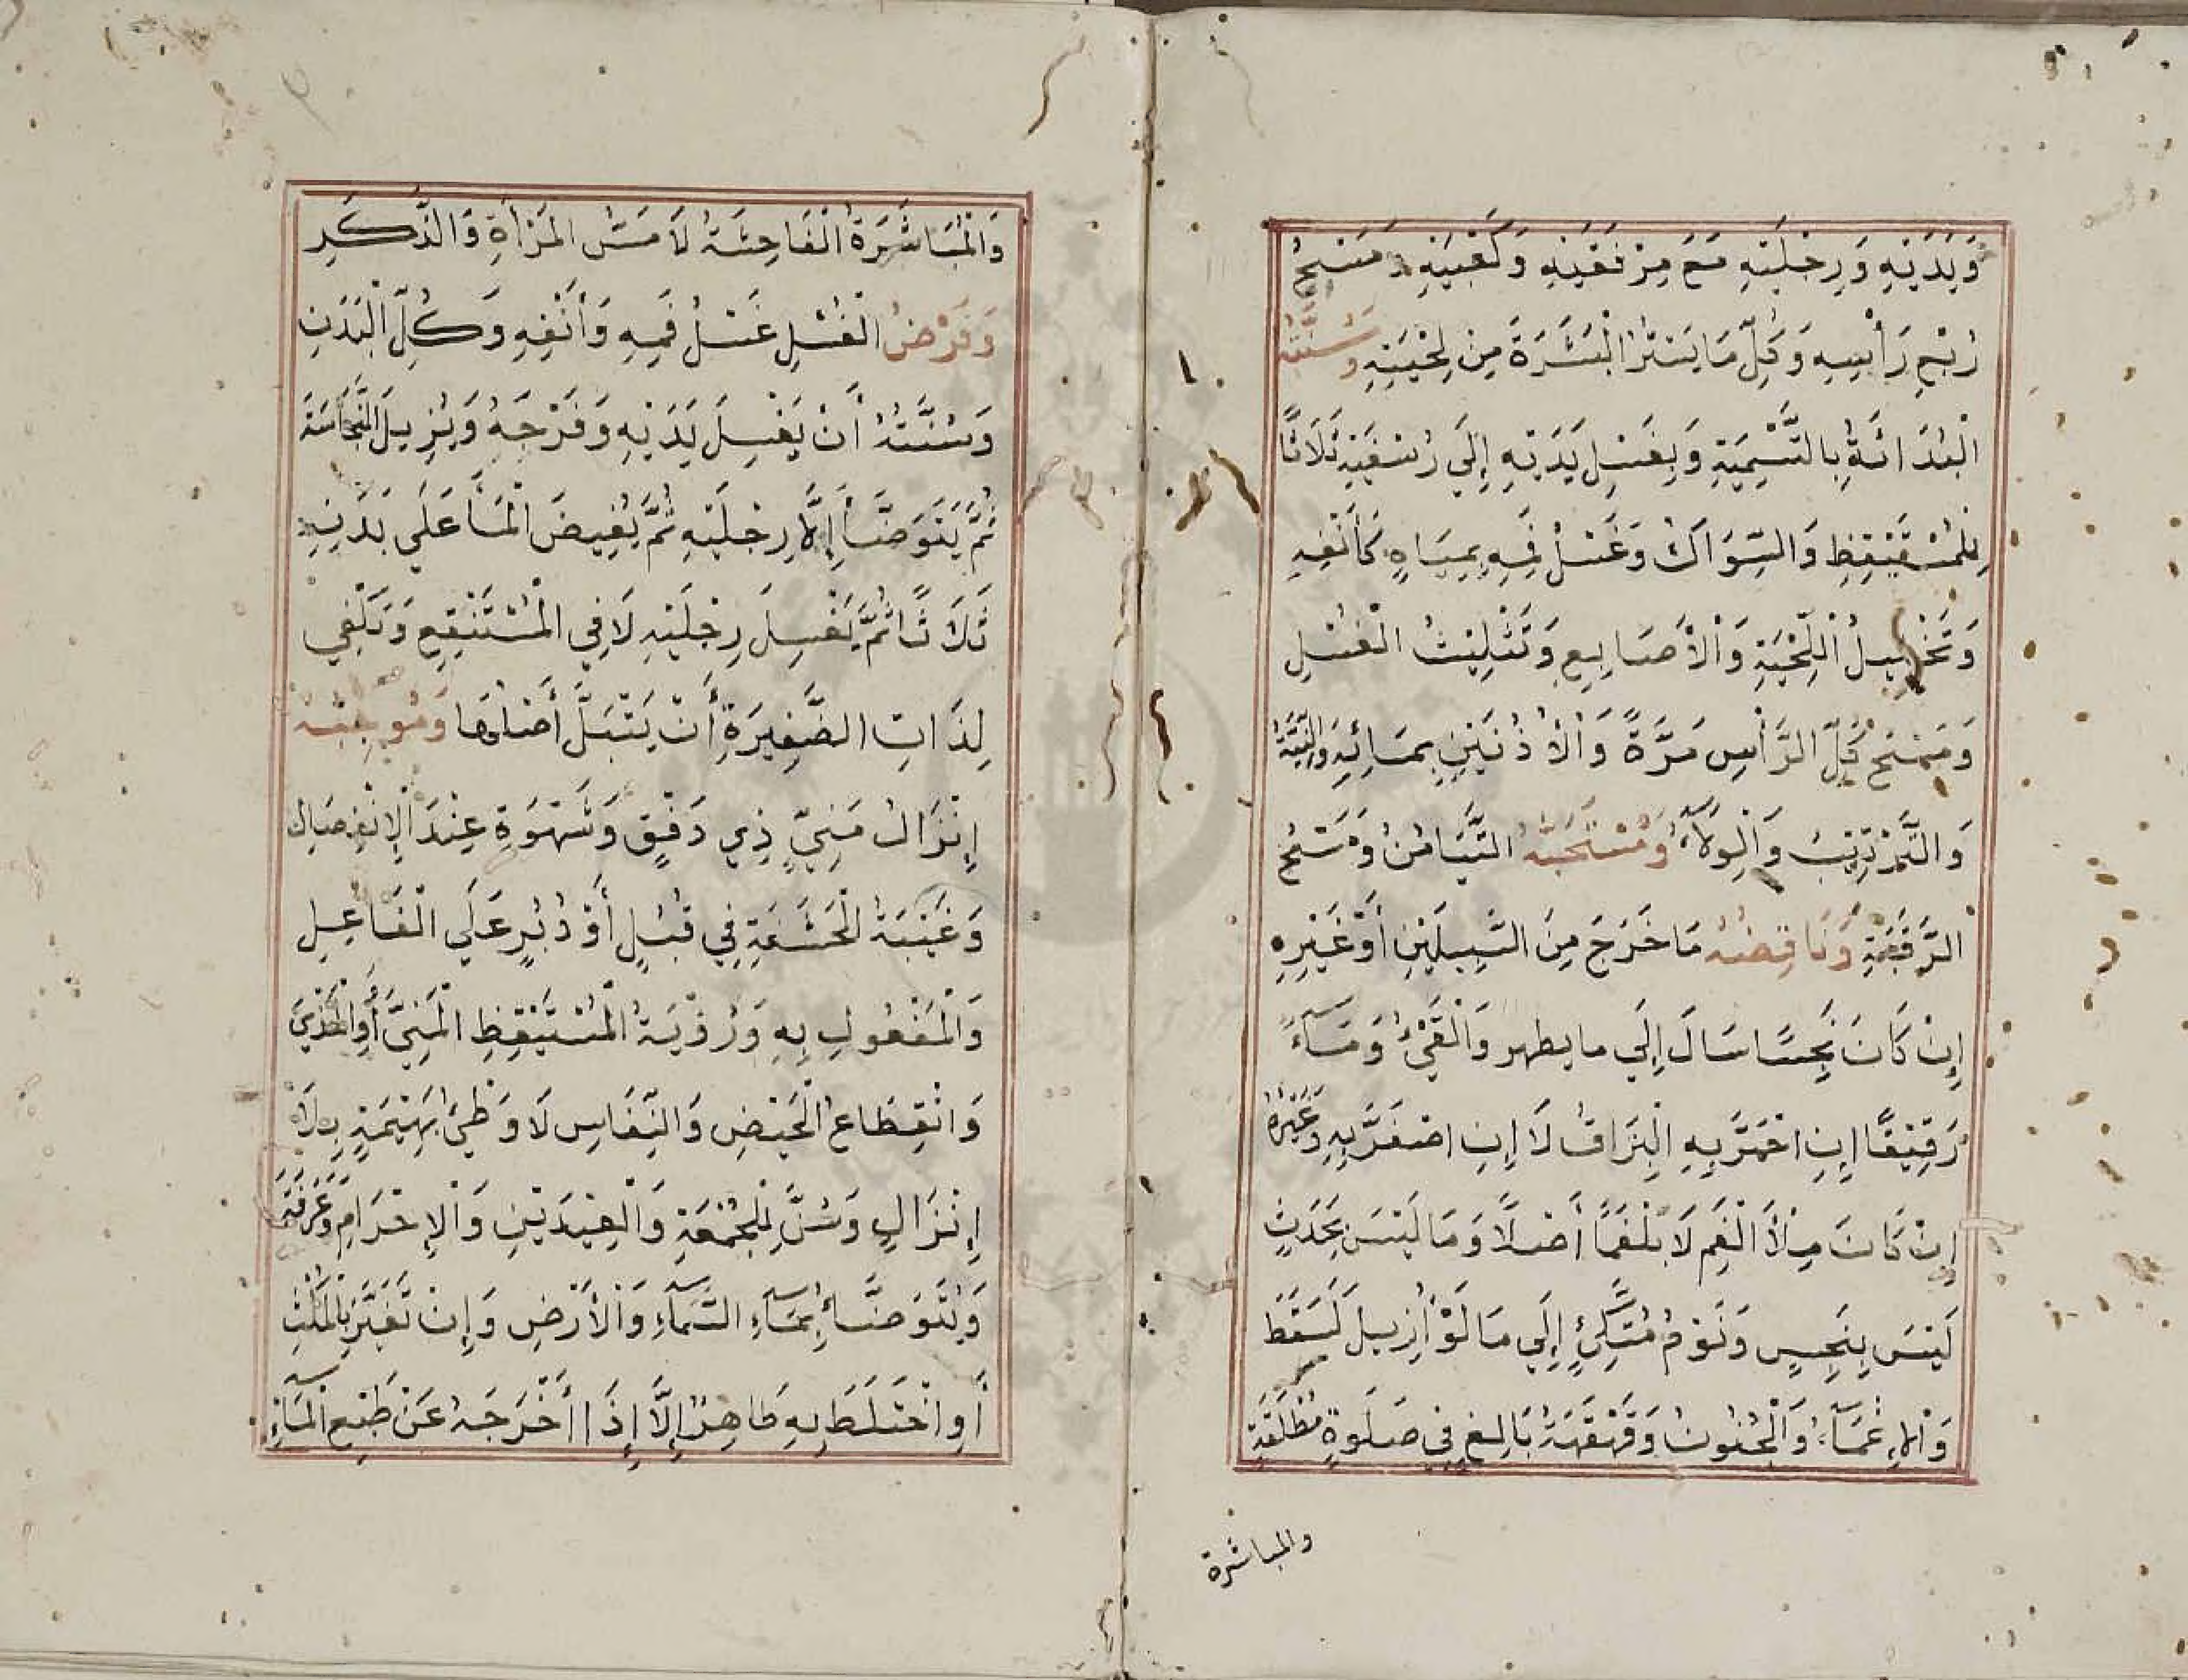 وَيَدَيْهِ وَرِجْلَيْهِ مَعَ مِرْفَقَيْهِ وَكَعْبَيْهِ وَمَسْحُ
رُبْعِ رَأْسِهِ وَكُلِّ مَا يَسْتُرُ الْبَشَرَةَ مِنْ لِحْيَتِهِ وَسُنَّتُهُ
الْبُدَائَةُ بِالتَّسْمِيَةِ وَبِغَسْلِ يَدَيْهِ إِلَى رُسْغَيْهِ ثَلَاثًا
لِلْمُسْتَيْقِظِ وَالسِّوَاكُ وَغَسْلُ فَمِهِ بِمِيَاهٍ كَأَنْفِهِ
وَتَخْلِيلُ اللِّحْيَةِ وَالْأَصَابِعِ وَتَثْلِيْثُ الْغَسْلِ
وَمَسْحُ كُلِّ الرَّأْسِ مَرَّةً وَالْأُذُنَيْنِ بِمَائِهِ وَالنِّيَّةُ
وَالتَّرْتِيْبُ وَالْوِلَآءُ وَمُسْتَحَبُّهُ التَّيَامُنُ وَمَسْحُ
الرَّقَبَةِ وَنَاقِضُهُ مَا خَرَجَ مِنَ السَّبِيلَيْنِ أَوْ غَيْرِهِ
إِنْ كَانَ نَجِسًا سَالَ إِلَى ما يطهر وَالْقَيْءُ وَمَآءً
رَقِيْقًا إِنِ احْمَرَّ بِهِ الْبُزَاقُ لَا إِنِ اصْفَرَّ بِهِ وَغَيْرُهُ
إِنْ كَانَ مِلْأَ الْفَمِ لَا بَلْغَمًا أَصْلًا وَمَا لَيْسَ بِحَدَثٍ
لَيْسَ بِنَجِسٍ وَنَوْمُ مُتَّكِئٍ إِلَى مَا لَوْ أُزِيلَ لَسَقَطَ
وَالْإِغْمَآءُ وَالْجُنُونُ وَقَهْقَهَةُ بَالِغٍ فِي صَلٰوةٍ مُطْلَقَةٍ
والمباشرة
وَالْمُبَاشَرَةُ الْفَاحِشَةُ لَا مَسُّ الْمَرْأَةِ وَالذَّكَرِ
وَفَرْضُ الْغُسْلِ غَسْلُ فَمِهِ وَأَنْفِهِ وَكُلِّ الْبَدَنِ
وَسُنَّتُهُ أَنْ يَغْسِلَ يَدَيْهِ وَفَرْجَهُ وَيُزِيلَ النَّجَاسَةَ
ثُمَّ يَتَوَضَّأَ إِلَّا رِجْلَيْهِ ثُمَّ يُفِيضَ الْمَاءَ عَلَى بَدَنِهِ
ثَلَاثًا ثُمَّ يَغْسِلَ رِجْلَيْهِ لَا فِي الْمُسْتَنْقِعِ وَيَكْفِي
لِذَاتِ الضَّفِيرَةِ أَنْ يَبْتَلَّ أَصْلُهَا وَمُوجِبُهُ
إِنْزَالُ مَنِيٍّ ذِي دَفْقٍ وَشَهْوَةٍ عِنْدَ الْاِنْفِصَالِ
وَغَيْبَةُ الْحَشَفَةِ فِي قُبُلٍ أَوْ دُبُرٍ عَلَى الْفَاعِلِ
وَالْمَفْعُولِ بِهِ وَرُؤْيَةُ الْمُسْتَيْقِظِ الْمَنِيَّ أَوِ الْمَذْيَ
وَانْقِطَاعُ الْحَيْضِ وَالنِّفَاسِ لَا وَطْئُ بَهِيْمَةٍ بِلَا
إِنْزَالٍ وَسُنَّ لِلْجُمْعَةِ وَالْعِيْدَيْنِ وَالْإِحْرَامِ وَعَرَفَةَ
وَيُتَوَضَّأُ بِمَآءِ السَّمَآءِ وَالْأَرْضِ وَإِنْ تَغَيَّرَ بِالْمَكْثِ
أَوِ اخْتَلَطَ بِهِ طَاهِرٌ إِلَّا إِذَا أَخْرَجَهُ عَنْ طَبْعِ الْمَآءِ